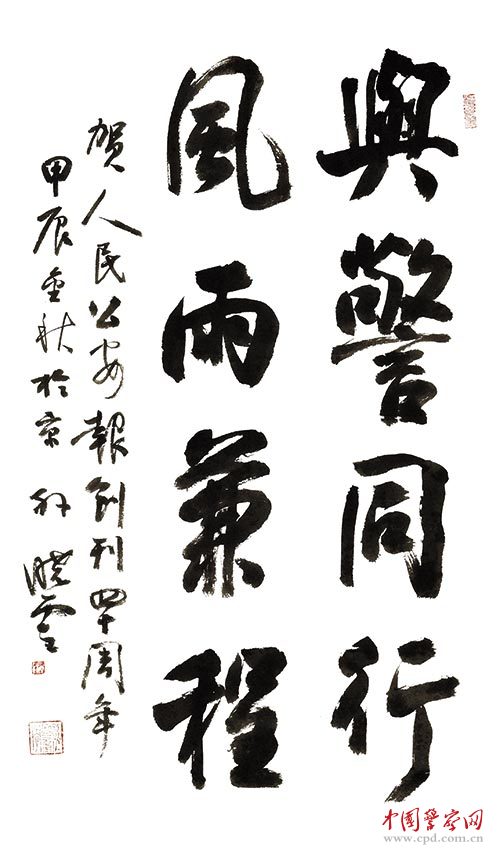 與警同行
風雨兼程
賀人民公安報創刊四十周年
甲辰金秋於京 孙曉雲
中國警察网
www.cpd.com.cn